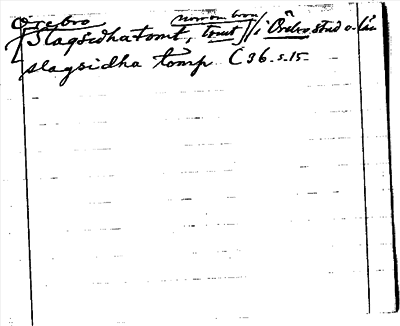 Örebro
[Slagsidhatomt, norron bron tomt] i Örebro stad o. län
slagsidha tomp C 36 s. 15